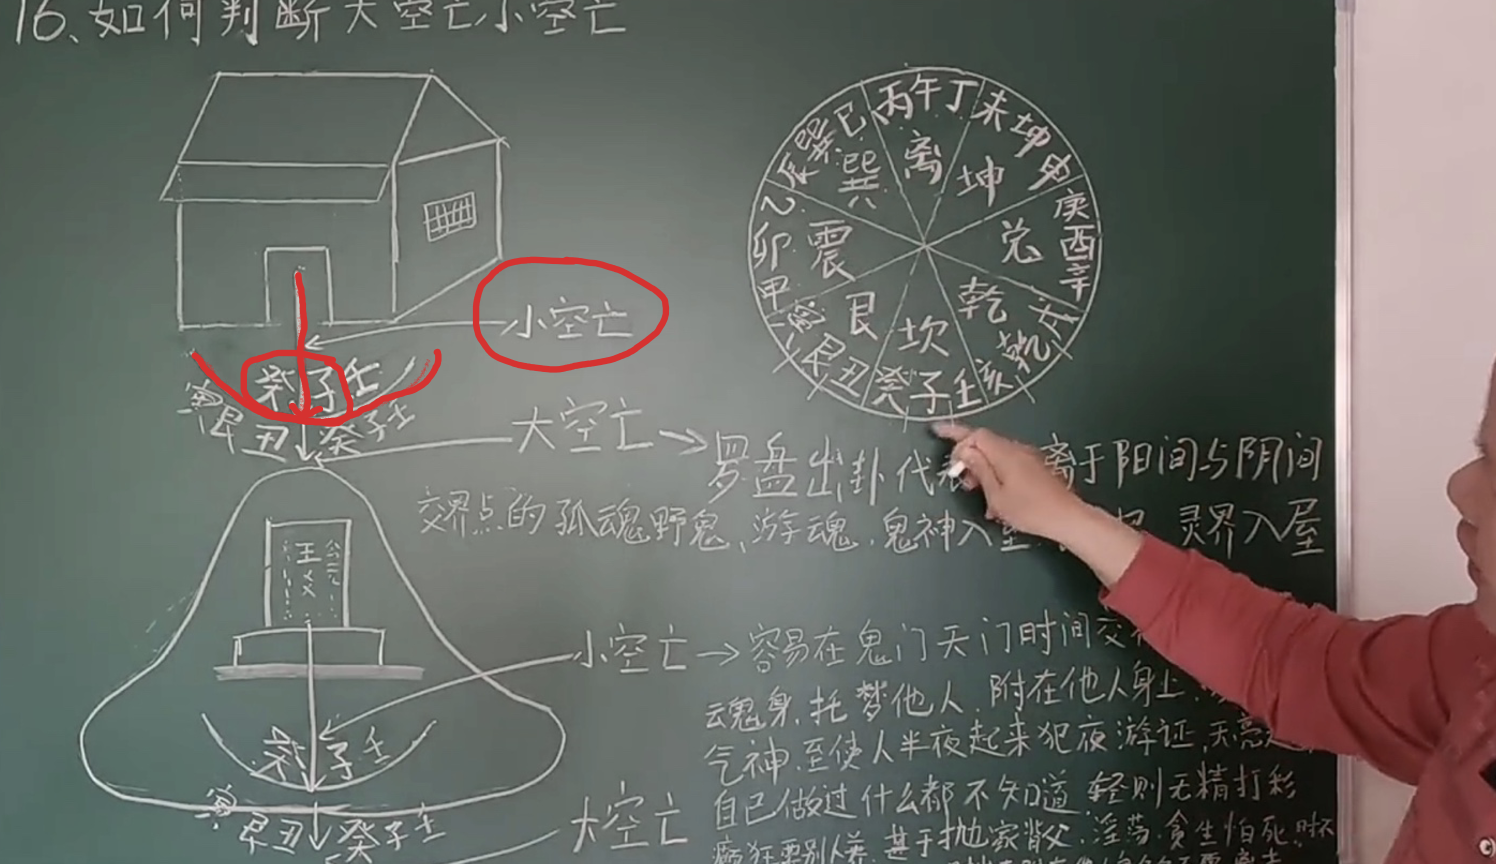 16、如何判断大空亡小空亡
丙午丁
未坤申
庚酉辛
戌乾亥
壬子癸
丑艮寅
甲卯乙
辰巽巳
离
坤
兑
乾
坎
艮
震
巽
小空亡
癸子壬
寅艮丑 癸子壬
大空亡→罗盘出卦代表 离于阳间与阴间
交界点的孤魂野鬼、游魂、鬼神入 灵界入屋
王××
公元
小空亡→容易在鬼门天门时间交
魂身、托梦他人、附在他人身上、
气神、至使人半夜起来犯夜游证、天亮
癸子壬
大空亡 自己做过什么都不知道、轻则无精打彩
寅艮丑 癸子壬
疯狂 甚于抛家背父、淫荡、贪生怕死、时不